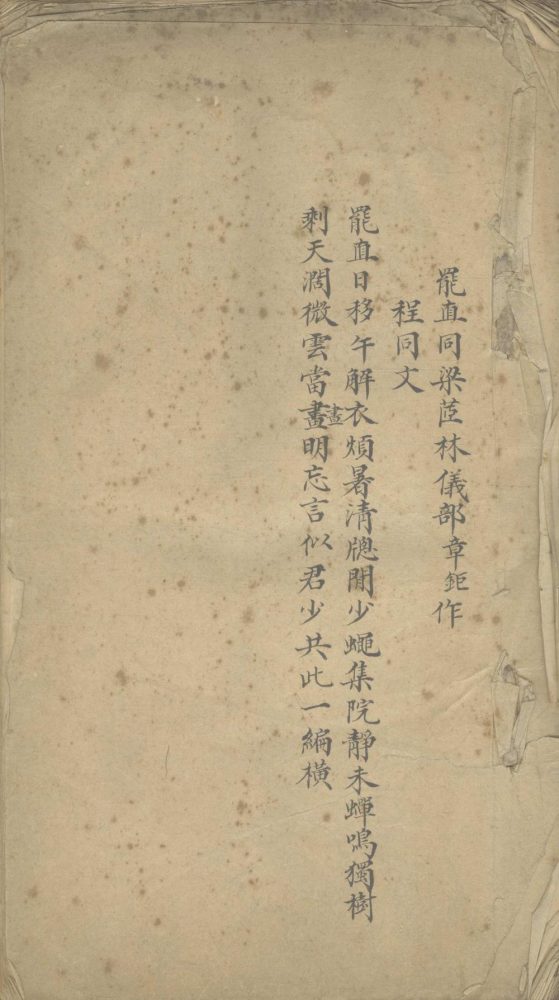 罷直同梁茝林儀部章鉅作
程同文
罷直日移午解衣煩暑清牕閒少蠅集院靜未蟬鳴獨樹
剩天濶微雲當畫晝明忘言似君少共此一編橫